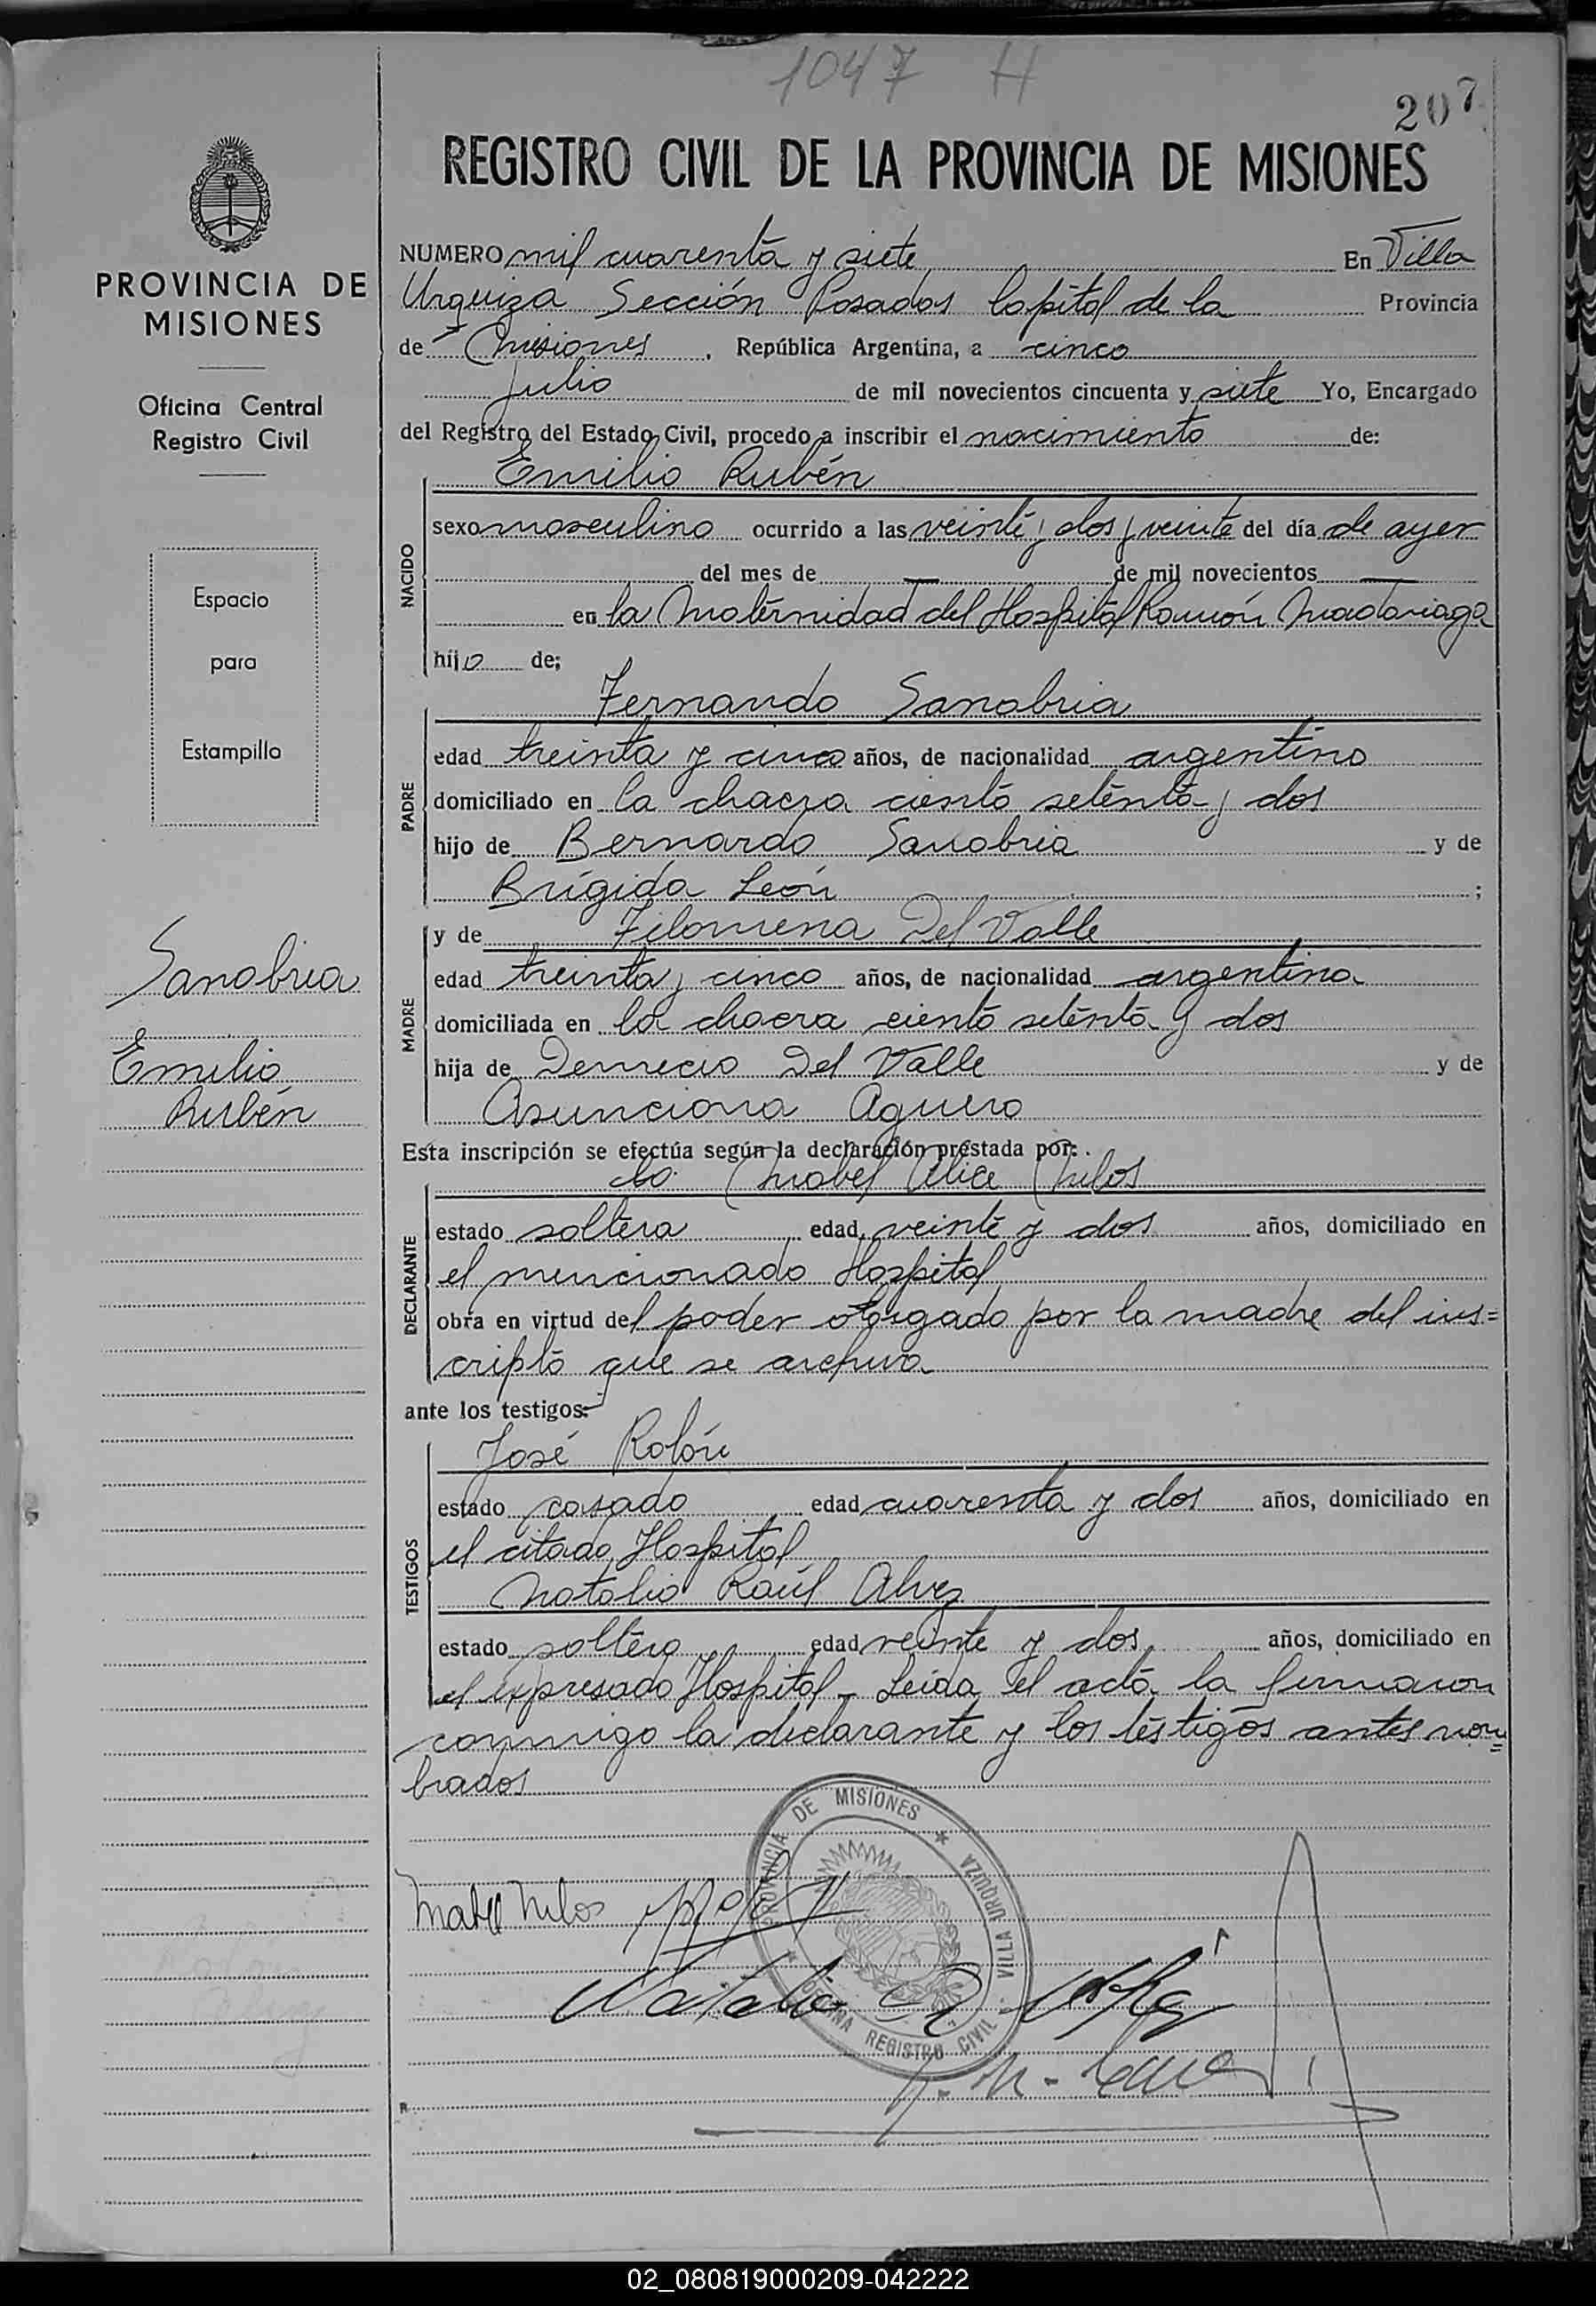 1047 H
207
REGISTRO CIVIL DE LA PROVINCIA DE MISIONES
PROVINCIA DE
MISIONES
Oficina Central
Registro Civil
Espacio
para
Estampilla
Sanabria
Emilio
Rubén
NUMERO mil cuarenta y siete En Villa
Urquiza Sección Posadas Capital de la Provincia
de Misiones, República Argentina, a cinco
Julio de mil novecientos cincuenta y siete Yo, Encargado
del Registro del Estado Civil, procedo a inscribir el nacimiento de:
Emilio Rubén
NACIDO
sexo masculino ocurrido a las veinte y dos y veinte del día de ayer
del mes de — de mil novecientos —
en la Maternidad del Hospital Ramón Madariaga
hijo de;
Fernando Sanabria
PADRE
edad treinta y cinco años, de nacionalidad argentino
domiciliado en la chacra ciento setenta y dos
hijo de Bernardo Sanabria y de
Brígida León ;
MADRE
y de Filomena Del Valle
edad treinta y cinco años, de nacionalidad argentina
domiciliada en la chacra ciento setenta y dos
hija de Demecio Del Valle y de
Asunciona Aguero
Esta inscripción se efectúa según la declaración prestada por:
Mabel Alice Milos
DECLARANTE
estado soltera edad veinte y dos años, domiciliado en
el mencionado Hospital
obra en virtud del poder otorgado por la madre del ins=
cripto que se archiva
ante los testigos:
José Rolón
TESTIGOS
estado casado edad cuarenta y dos años, domiciliado en
el citado Hospital
Natalio Raúl Alvez
estado soltero edad veinte y dos años, domiciliado en
el expresado Hospital - Leída el acta la firmaron
conmigo la declarante y los testigos antes nom=
brados
PROVINCIA DE MISIONES * VILLA URQUIZA
OFICINA REGISTRO CIVIL
Mabel Milos
Natalio R.
02_080819000209-042222